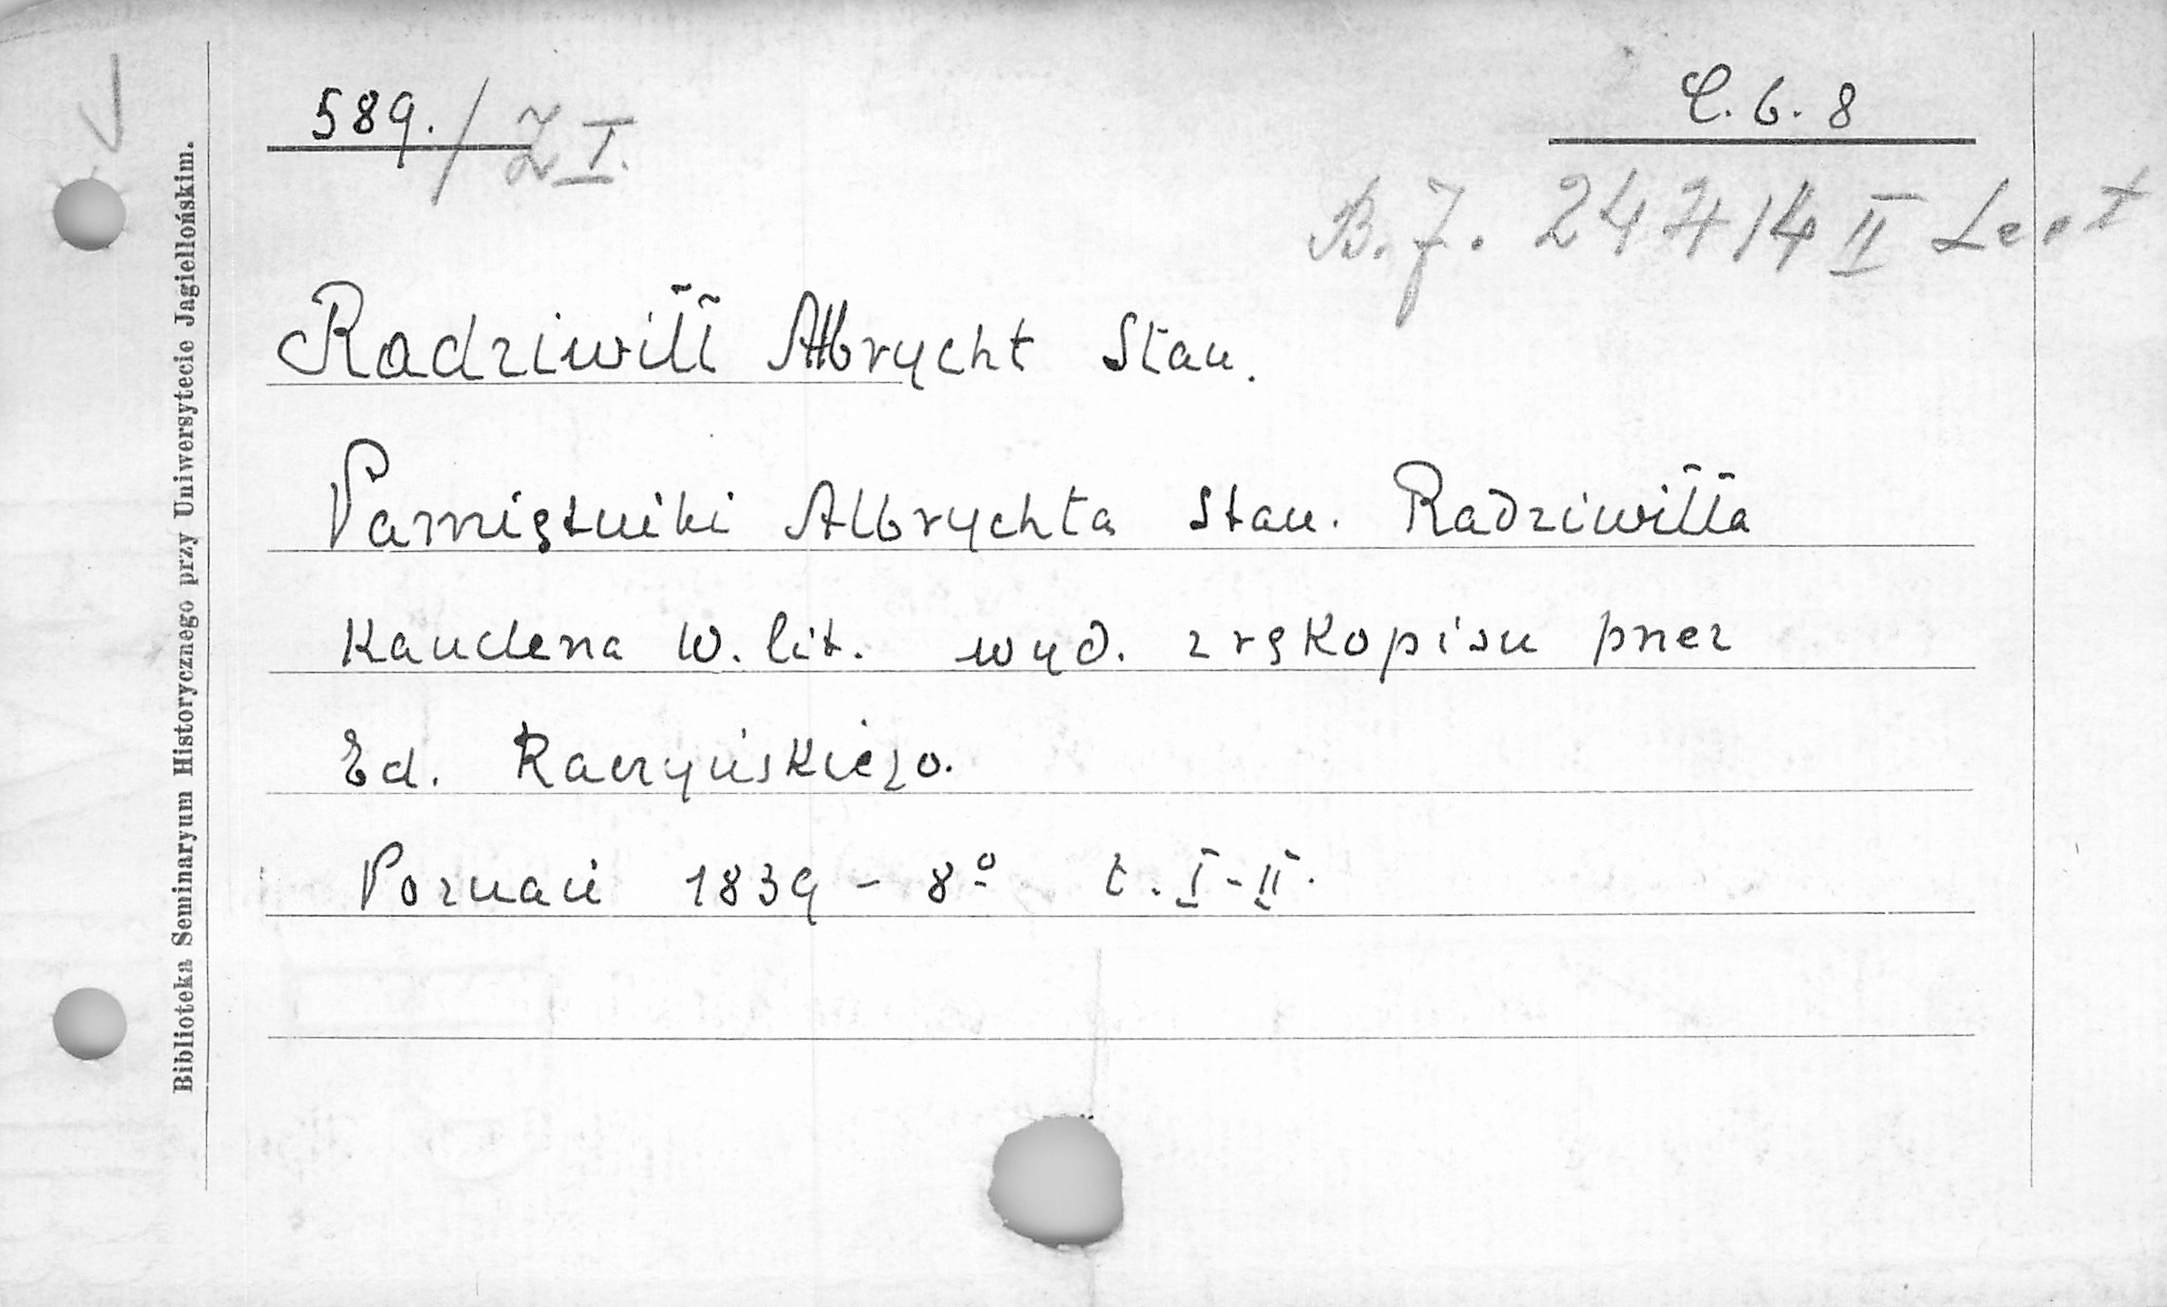 589./ Z I.
C. b. 8
B. J. 24714 II Lect
Radziwiłł Albrycht Stan.
Pamiętniki Albrychta Stan. Radziwiłła
Kanclerza W. lit. wyd. z rękopisu przez
Ed. Raczyńskiego.
Poznań 1839 - 8º t. I-II.
Biblioteka Seminaryum Historycznego przy Uniwersytecie Jagiellońskim.